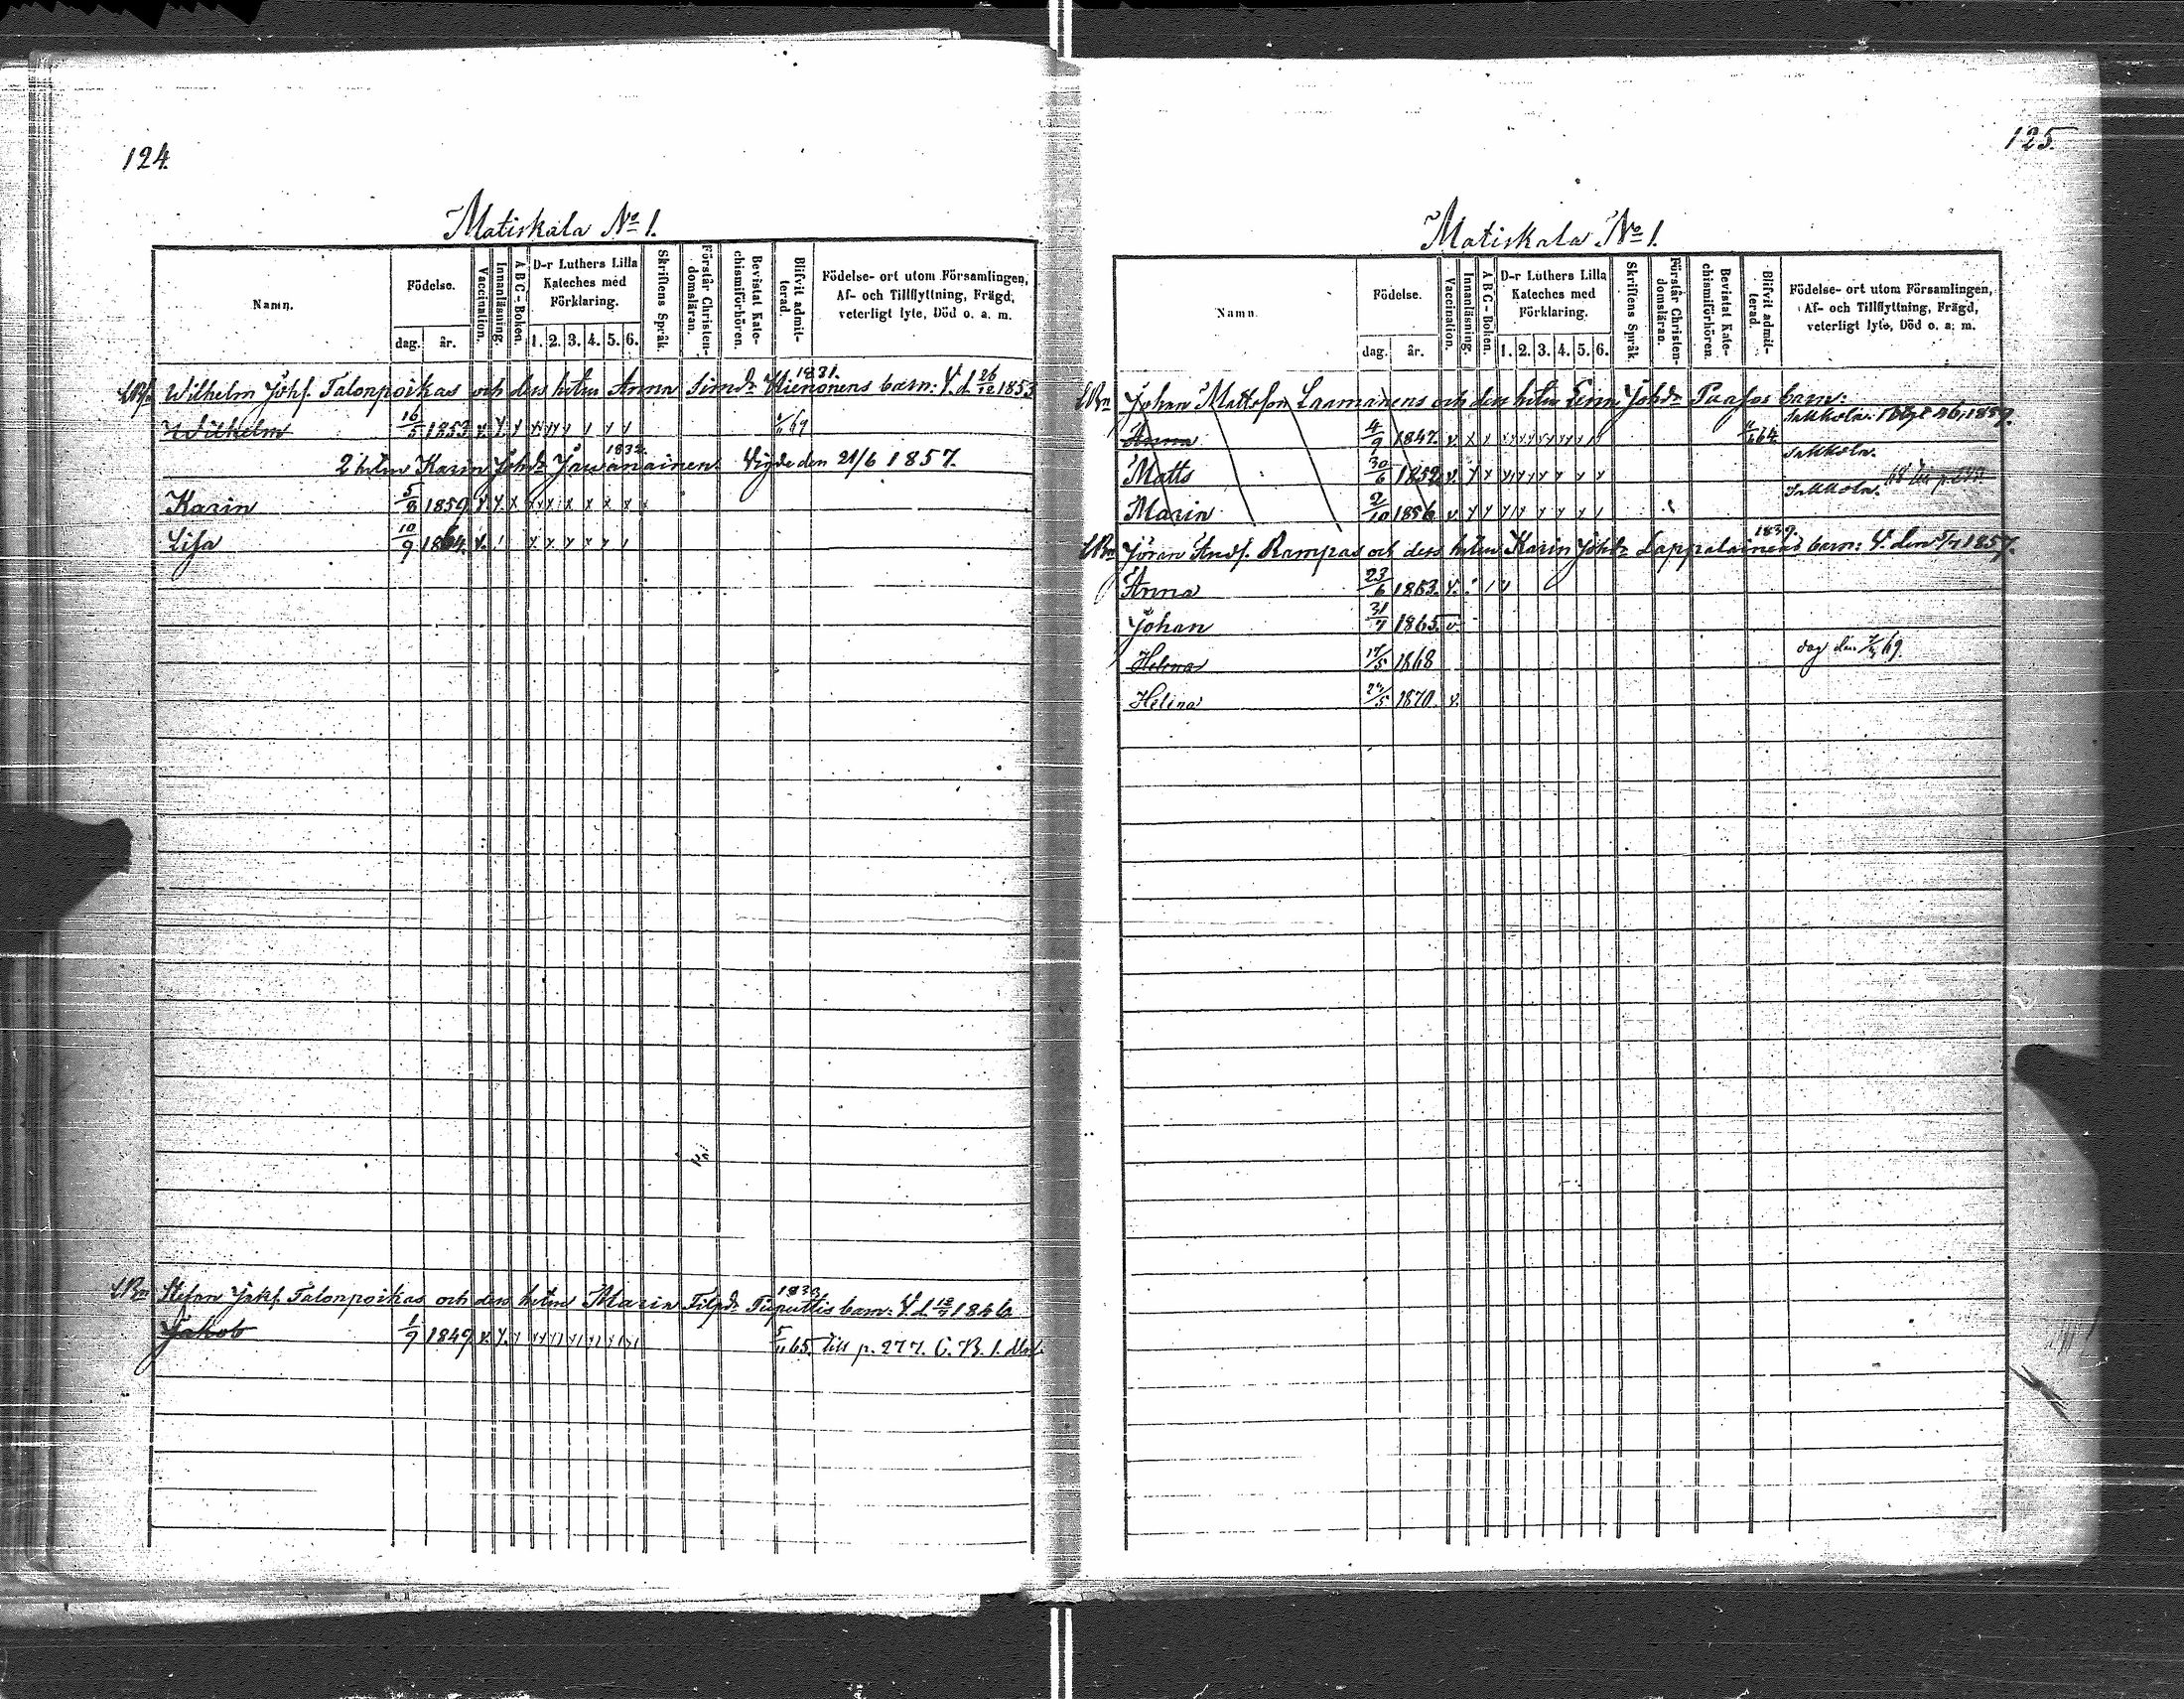 124.
Matiskala No 1.
Namn.
Födelse.
dag.
år.
Vaccination.
Innanläsning.
A B C - Boken.
D-r Luthers Lilla
Kateches med
Förklaring.
1. 2. 3. 4. 5. 6.
Skriftens Språk.
Förstår Christen-
domsläran.
Bevistat Kate-
chismiförhören.
Blifvit admit-
terad.
Födelse- ort utom Församlingen,
Af- och Tillflyttning, Frägd,
veterligt lyte, Död o. a. m.
1831.
Wilhelm Johs. Talonpoikas och dess hstru Anna Simdr Hienonens barn: V. d. 26/12 1853
Wilhelm 16/5 1853 69
1832.
2 hstru Karin Johdr Jauanainen Vigde den 21/6 1857.
Karin 5/8 1859
Lisa 10/9 1864.
1833
Stefan Jakf. Talonpoikas och dess hstru Maria Filpdr Puputtis barn: V. d. 12/7 1846
Jakob 1/9 1849 5/11 65. till p. 277. C. B. 1.
125.
Matiskala No 1.
Namn.
Födelse.
dag.
år.
Vaccination.
Innanläsning.
A B C - Boken.
D-r Luthers Lilla
Kateches med
Förklaring.
1. 2. 3. 4. 5. 6.
Skriftens Språk.
Förstår Christen-
domsläran.
Bevistat Kate-
chismiförhören.
Blifvit admit-
terad.
Födelse- ort utom Församlingen,
Af- och Tillflyttning, Frägd,
veterligt lyte, Död o. a. m.
Johan Mattsson Laamanens och dess hstru Johdr Paasos barn:
Anna 4/9 1847. 64. Sakkola. 1859.
Matts 30/6 1852 Sakkola.
Maria 2/10 1856 Sakkola.
1839.
Jöran Andf. Rampas och dess hstru Karin Johdr Lappalainens barn: V. den 5/7 1857.
Anna 23/6 1863.
Johan 31/7 1865.
Helena 17/5 1868 dog den 69.
Helena 24/5 1870